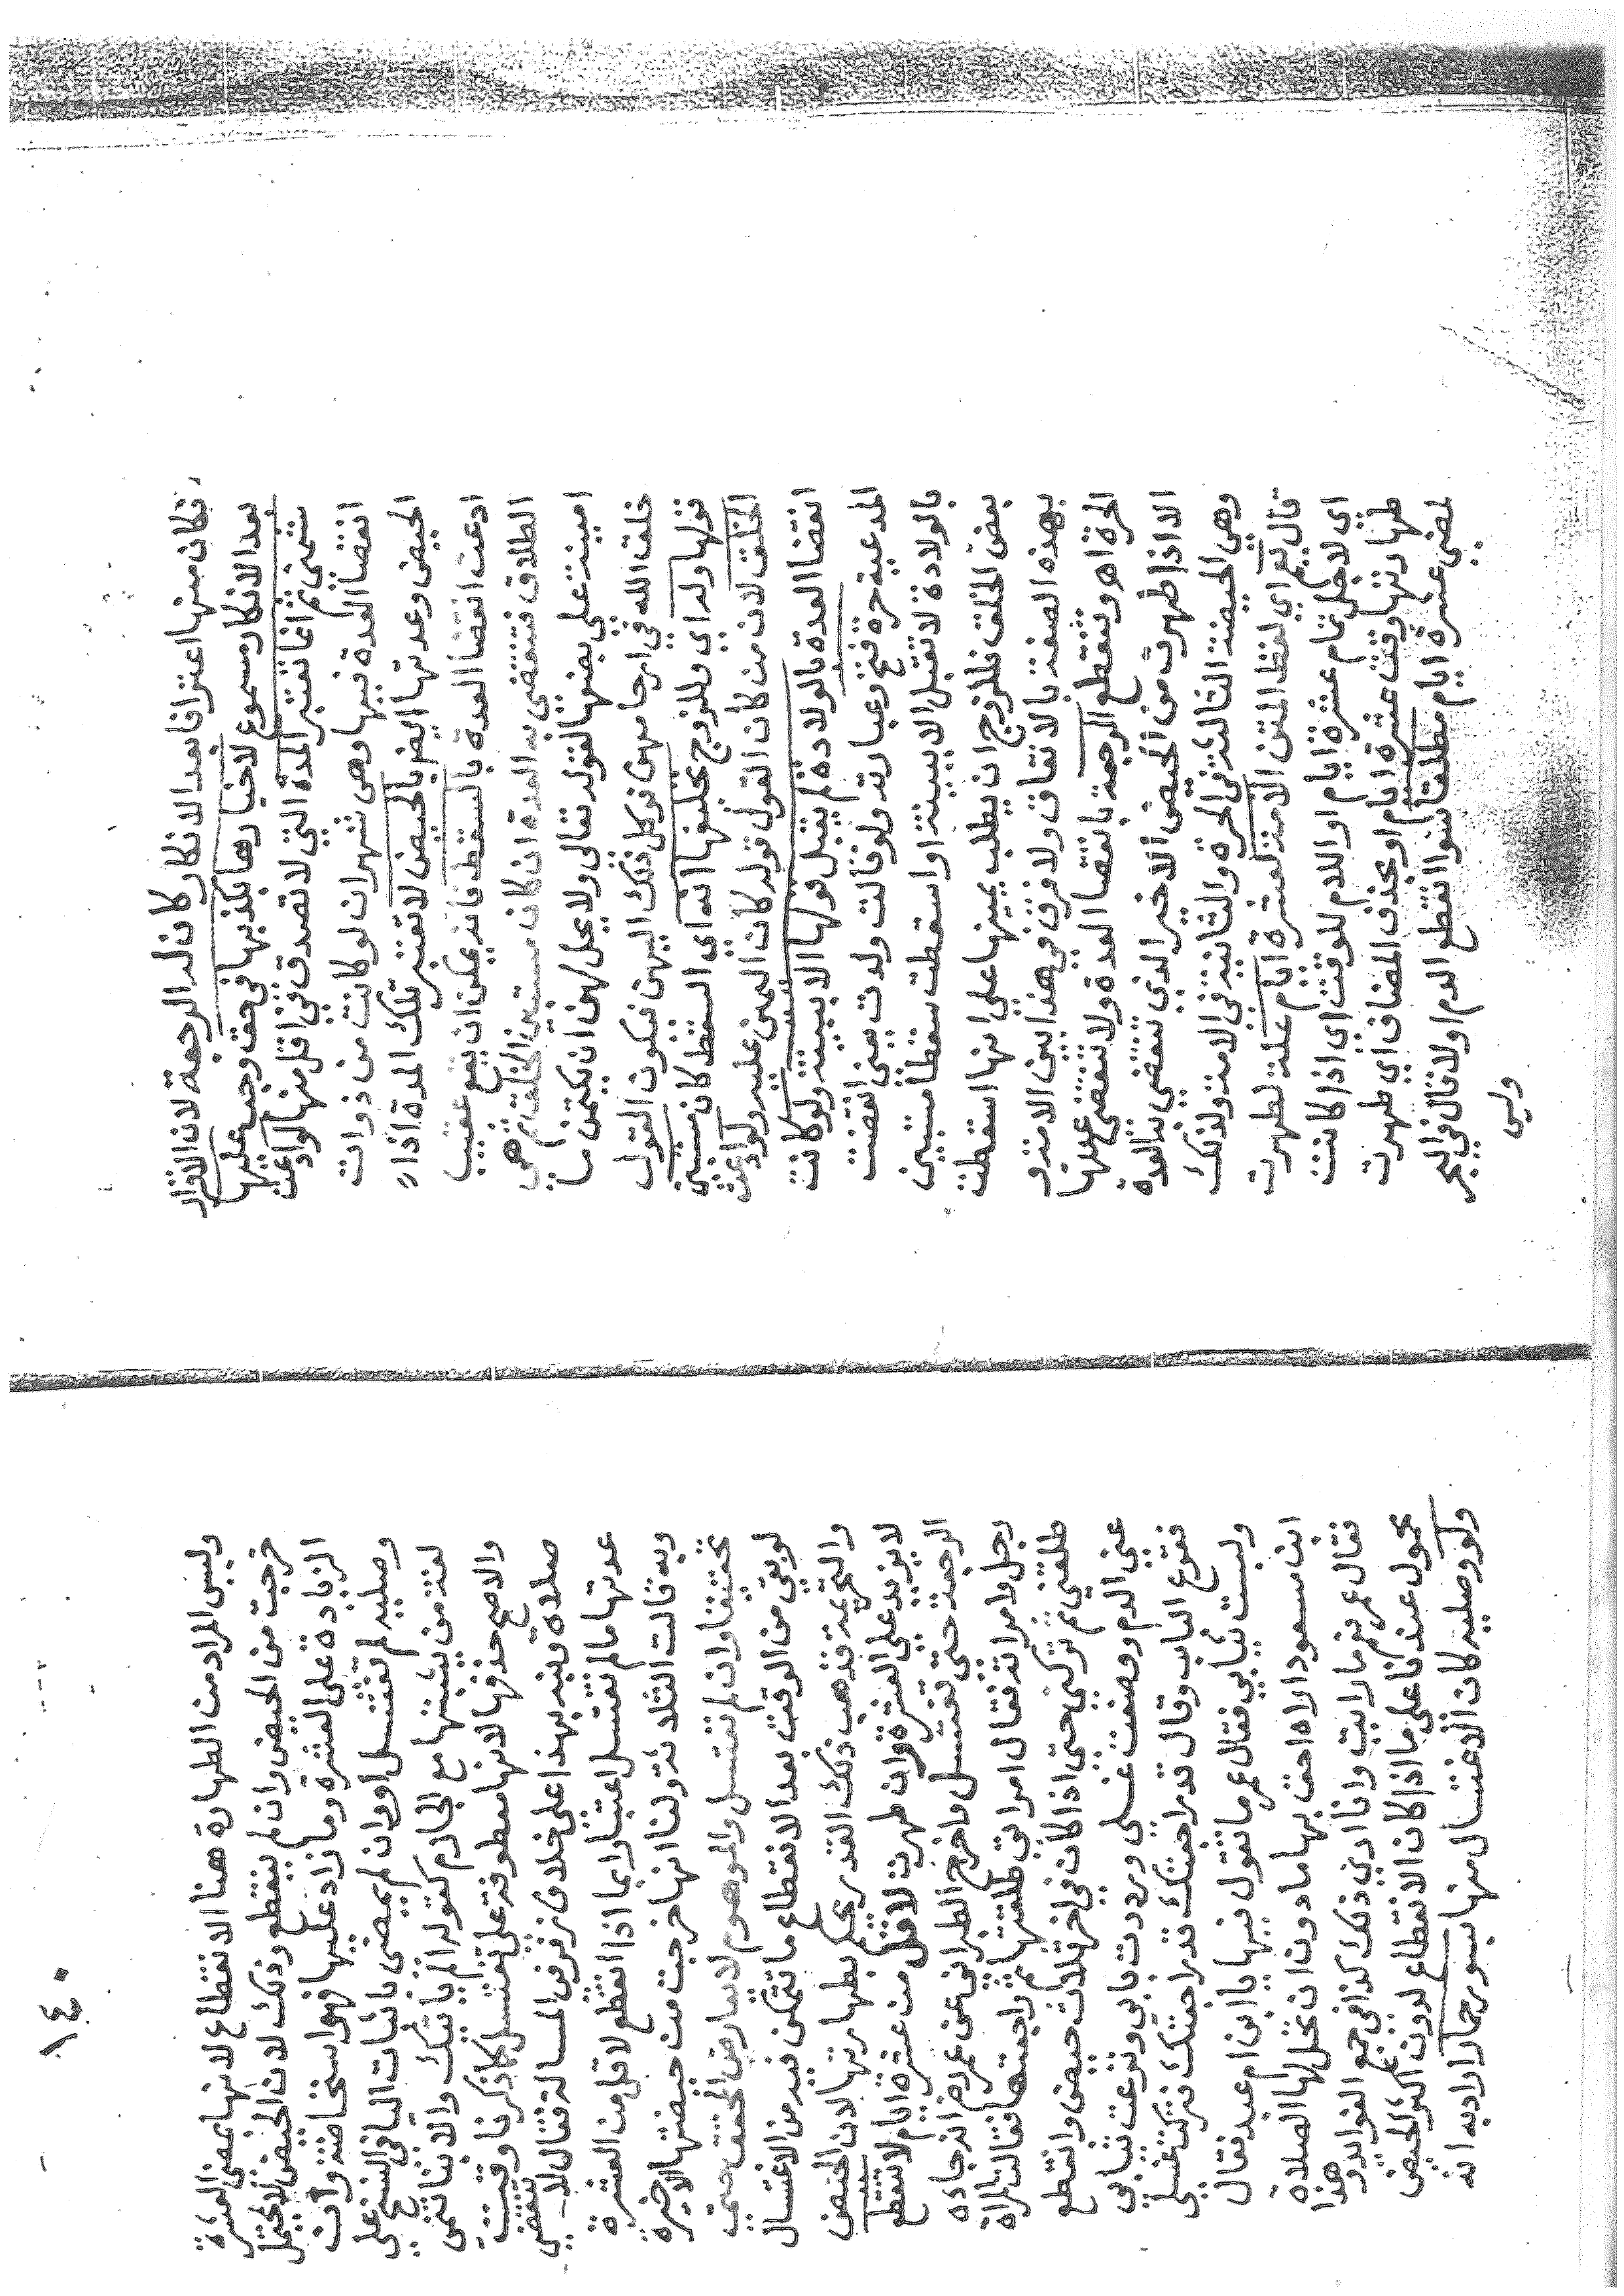 فكان منها اعترافا بعد الانكار كان له الرجعة لان الاقرار
بعد الانكار مسموع لاخبارها بكذبها في حق وجب عليها
شمني ثم انما تعتبر المدة التي لا تصدق في اقل منها لو ادعت
انقضا العدة فيها وهي شهران لو كانت من ذوات
الحيض وعدتها ايضا بالحيض لا تعتبر تلك المدة اذا
ادعت انقضا العدة بالسقط فانه يمكن ان يقع عقيب
الطلاق فتنقضي به العدة ان كان مستبين الخلقة ثم هي
امينة على بضعها لقوله تعالى ولا يحل لهن ان يكتمن ما
خلق الله في ارحامهن فوكل ذلك اليهن فيكون القول
قولها وله اي وللزوج تحليفها انه اي السقط كان مستبين
الخلق لان من كان القول قوله كان اليمين عليه ولو ادعت
انقضا العدة بالولادة لم يقبل قولها الا ببينة ولو كانت
المدعية حرة فتح وعبارته ولو قالت ولدت يعني انقضت
بالولادة لا تقبل الا ببينة او اسقطت سقطا مستبين
بعض الخلق فللزوج ان يطلب يمينها على انها اسقطت
بهذه الصفة بالاتفاق ولا فرق في هذا بين الامة و
الحرة اهـ وتنقطع الرجعة بانقضا العدة ولا تنقضي عدتها
الا اذا طهرت من الحيض الاخير الذي تنقضي به العدة
وهي الحيضة الثالثة في الحرة والثانية في الامة ولذلك
قال يعم اي لفظ المتن الامة لعشرة ايام علة لطهرت
اي لاجل تمام عشرة ايام او اللام للوقت اي اذا كانت
طهارتها وقت عشرة ايام او بحذف المضاف اي طهرت
لمضي عشرة ايام مطلقا سوا انقطع الدم او لا قال في البحر
وليس
١٤٠
وليس المراد من الطهارة هنا الانقطاع لانها بمضي العشرة
خرجت من الحيض وان لم ينقطع وذلك لان الحيض لا يحتمل
الزيادة على العشرة وما زاد عليها فهو استحاضة وان
وصليه لم تغتسل او وان لم يمضي باثبات اليا في النسخ على
لغة من يثبتها مع الجازم كقوله الم ياتيك والانبا تنمي
والاصح حذفها لانها معطوفة على تغتسل كما ذكرنا وقت
صلاة قيد بهذا على خلاف زفر في المسالة فقال لا تنقضي
عدتها ما لم تغتسل اعتبارا بما اذا انقطع لاقل من العشرة
وبه قالت الثلاثة ولنا انها خرجت من حيضتها الاخيرة
تحقيقا وان لم تغتسل والموهوم لا يعارض المحقق حتى
لو بقي من الوقت بعد الانقطاع ما تتمكن فيه من الاغتسال
والتحريمة فذهب ذلك القدر يحكم بطهارتها لان الحيض
لا يزيد على العشرة وان طهرت لاقل من عشرة ايام لا تنقطع
الرجعة حتى تغتسل لما خرج الطبراني عن عمر رضي الله انه جاءه
رجل وامراته فقال امراتي طلقتها ثم راجعتها فقالت المراة
طلقني ثم تركني حتى اذا كان في اخر ثلاث حيض وانقطع
عني الدم ووضعت غسلي ورددت بابي ونزعت ثيابي
فقرع الباب وقال قد راجعتك قد راجعتك فتركت غسلي
ولبست ثيابي فقال عمر ما تقول فيها يا ابن ام عبد فقال
ابن مسعود اراه احق بها ما دون ان تحل لها الصلاة
فقال عمر نعم ما رايت وانا اري ذلك كذا في جمع الفوايد وهذا
محمول عندنا على ما اذا كان الانقطاع لدون اكثر الحيض
ولو وصليه كان الاغتسال منها بسور حمار اراد به انه